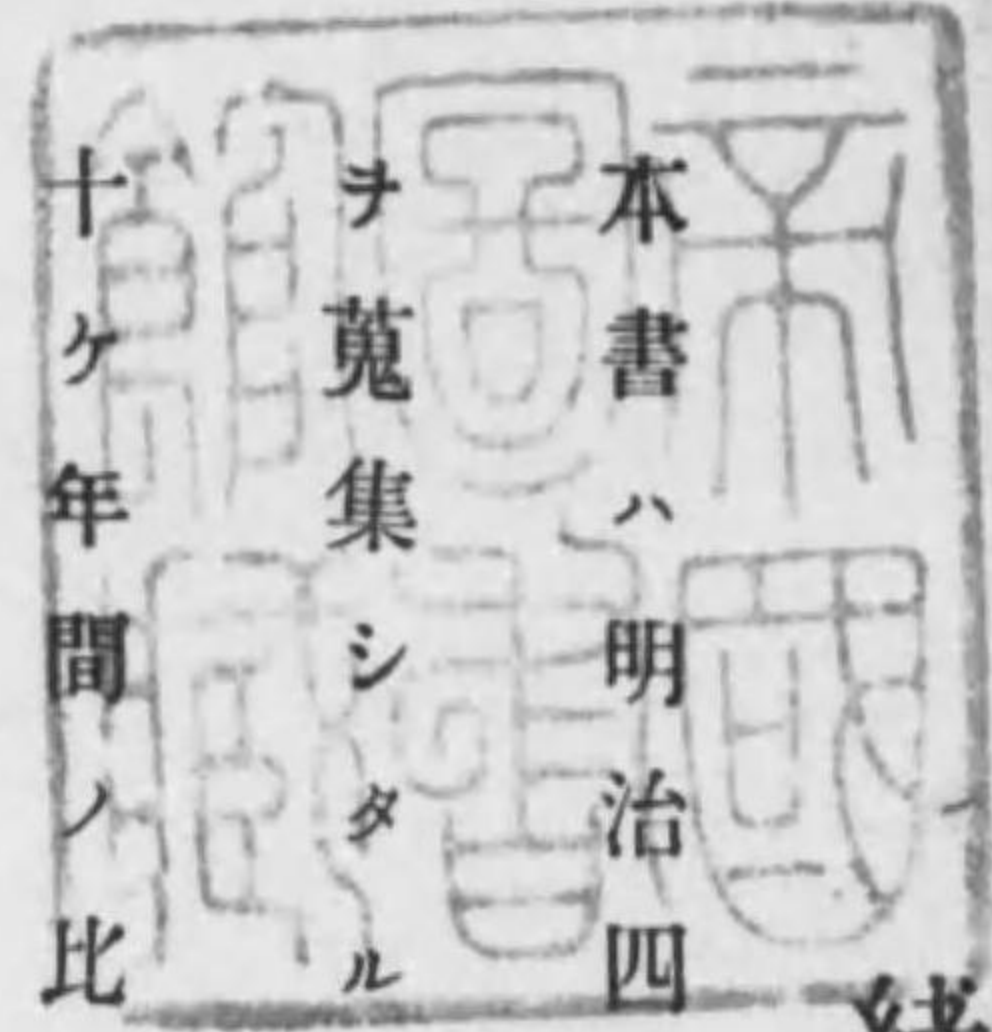 本書ハ明治四
ヲ蒐集シタル
十ヶ年間ノ比
帝國圖書館藏